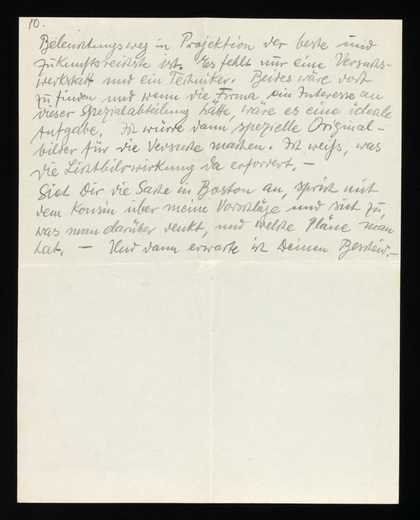 10.
Beleuchtungsweg in Projektion der beste und
zukunftsreichste ist. Es fehlt nur eine Versuchs-
werkstatt und ein Techniker. Beides wäre dort
zu finden und wenn die Firma ein Interesse an
dieser Spezialabteilung hätte, wäre es eine ideale
Aufgabe. Ich würde dann spezielle Original-
bilder für die Versuche machen. Ich weiß, was
die Lichtbildwirkung da erfordert. —
Sieh Dir die Sache in Boston an, sprich mit
dem Kousin über meine Vorschläge und sieh zu,
was man darüber denkt, und welche Pläne man
hat. — Und dann erwarte ich Deinen Bescheid. —